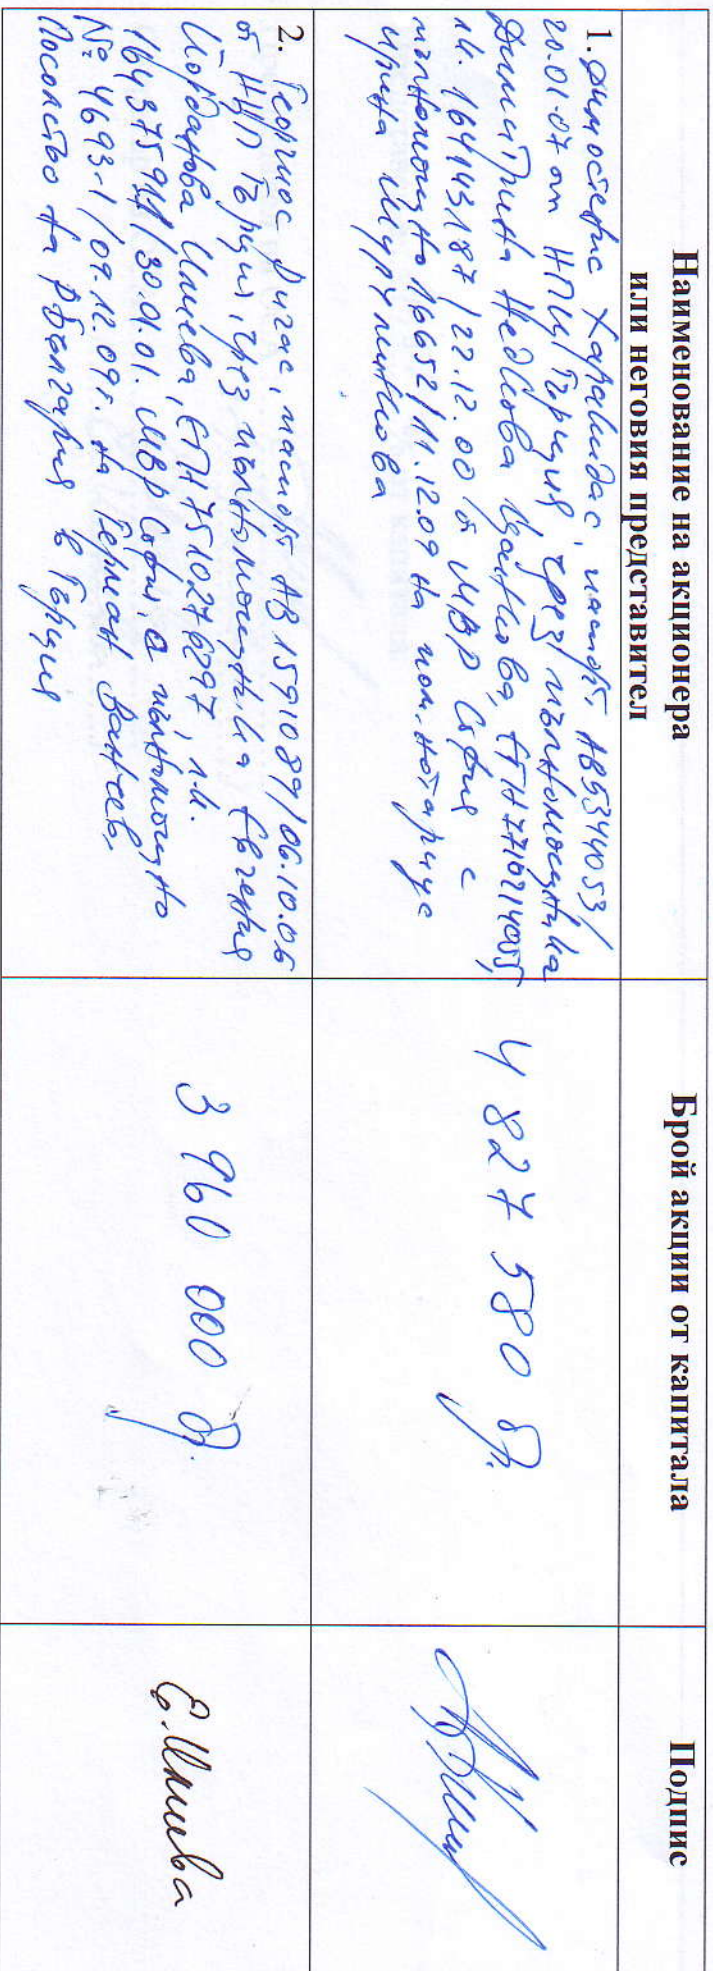 Наименование на акционера
или неговия представител
Брой акции от капитала
Подпис
1. Димостенис Харамидас, паспорт AB5344053/
20.01.07 от НПЦ Гърция чрез пълномощника
Димитрина Недкова Цанкова, ЕГН
л.к. 164143187/22.12.00 от МВР София с
пълномощно 16652/11.12.09 на пом. нотариус
Ирина
4 827 580 бр.
2. Георгиос Ригас, паспорт AB 1591089/06.10.06
от НЦП Гърция, чрез пълномощника Евгения
Йорданова Илиева, ЕГН 7510276297, л.к.
30.01.01. МВР София, с пълномощно
№ 4693-1/09.12.09г. на Герман Ванчев,
Посолство на РБългария в Гърция
3 960 000 бр.
Е. Илиева